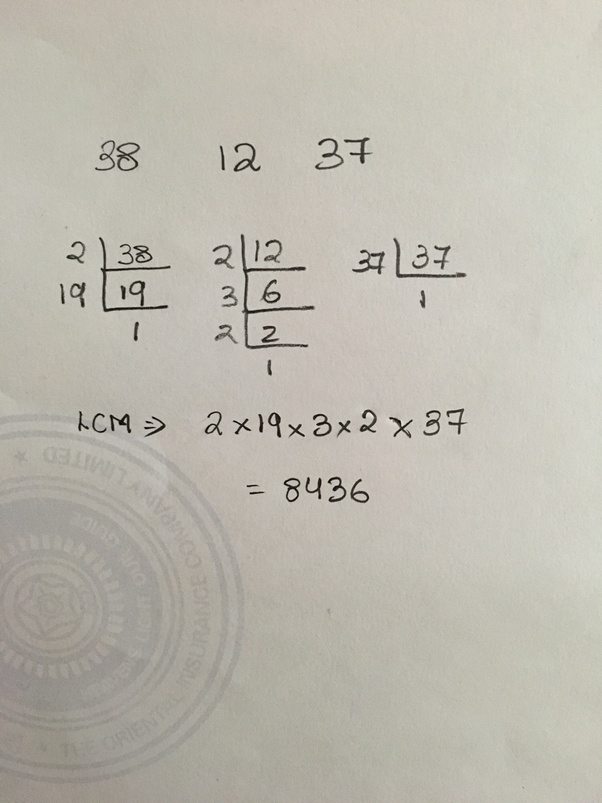 38 12 37
2 38 2 12 37 37
19 19 3 6 1
1 2 2
1
LCM ⇒ 2 × 19 × 3 × 2 × 37
= 8436
LIMITED
THE ORIENTAL INSURANCE COMPANY